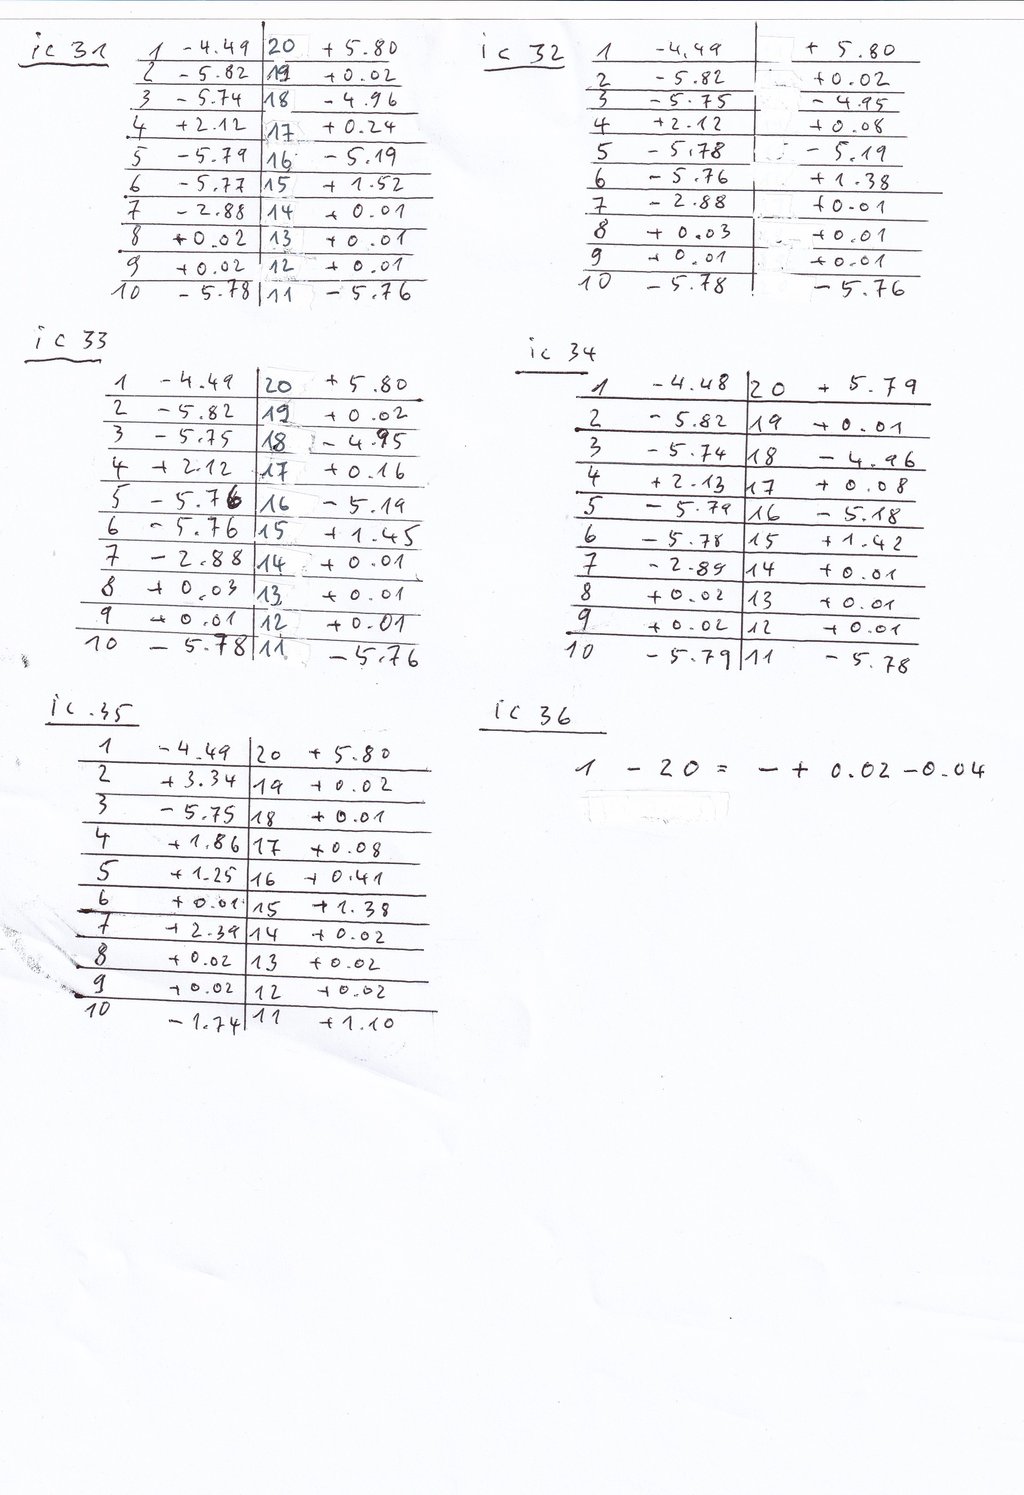 ic 31
1 -4.49 20 +5.80
2 -5.82 19 +0.02
3 -5.74 18 -4.96
4 +2.12 17 +0.24
5 -5.79 16 -5.19
6 -5.77 15 +1.52
7 -2.88 14 +0.01
8 +0.02 13 +0.01
9 +0.02 12 +0.01
10 -5.78 11 -5.76
ic 32
1 -4.49 +5.80
2 -5.82 +0.02
3 -5.75 -4.95
4 +2.12 +0.08
5 -5.78 -5.19
6 -5.76 +1.38
7 -2.88 +0.01
8 +0.03 +0.01
9 +0.01 +0.01
10 -5.78 -5.76
ic 33
1 -4.49 20 +5.80
2 -5.82 19 +0.02
3 -5.75 18 -4.95
4 +2.12 17 +0.16
5 -5.76 16 -5.19
6 -5.76 15 +1.45
7 -2.88 14 +0.01
8 +0.03 13 +0.01
9 +0.01 12 +0.01
10 -5.78 11 -5.76
ic 34
1 -4.48 20 +5.79
2 -5.82 19 +0.01
3 -5.74 18 -4.96
4 +2.13 17 +0.08
5 -5.79 16 -5.18
6 -5.78 15 +1.42
7 -2.89 14 +0.01
8 +0.02 13 +0.01
9 +0.02 12 +0.01
10 -5.79 11 -5.78
ic.35
1 -4.49 20 +5.80
2 +3.34 19 +0.02
3 -5.75 18 +0.01
4 +1.86 17 +0.08
5 +1.25 16 +0.41
6 +0.01 15 +1.38
7 +2.39 14 +0.02
8 +0.02 13 +0.02
9 +0.02 12 +0.02
10 -1.74 11 +1.10
ic 36
1 - 20 = -+ 0.02-0.04